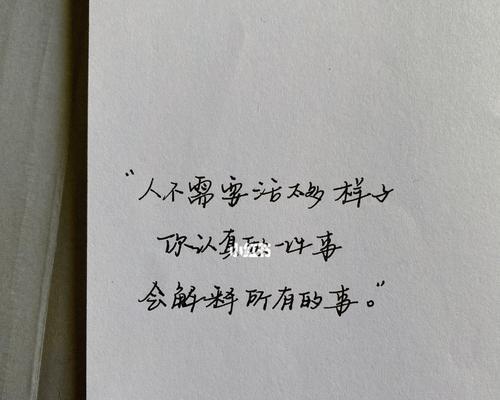 “人不需要活太多样子
你认真一件事
小红书
会解释所有的事。”